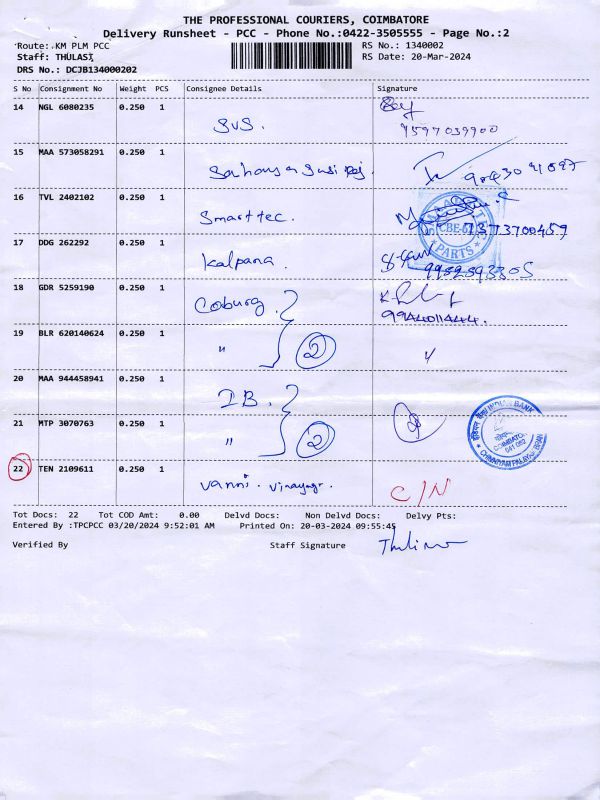 THE PROFESSIONAL COURIERS, COIMBATORE
Delivery Runsheet - PCC - Phone No.:0422-3505555 - Page No.:2
Route: KM PLM PCC RS No.: 1340002
Staff: THULASI RS Date: 20-Mar-2024
DRS No.: DCJB134000202
S No Consignment No Weight PCS Consignee Details Signature
14 NGL 6080235 0.250 1 SVS.
9597039900
15 MAA 573058291 0.250 1
16 TVL 2402102 0.250 1 Smarttec.
CBE-6
PARTS
17 DDG 262292 0.250 1 Kalpana.
9952593305
18 GDR 5259190 0.250 1 Coburg.
9944011444.
19 BLR 620140624 0.250 1 " 2 "
20 MAA 944458941 0.250 1 IB.
INDIAN BANK
21 MTP 3070763 0.250 1 " 2
22 TEN 2109611 0.250 1 Vanni. Vinayagr.
C/N
Tot Docs: 22 Tot COD Amt: 0.00 Delvd Docs: Non Delvd Docs: Delvy Pts:
Entered By :TPCPCC 03/20/2024 9:52:01 AM Printed On: 20-03-2024 09:55:45
Verified By Staff Signature